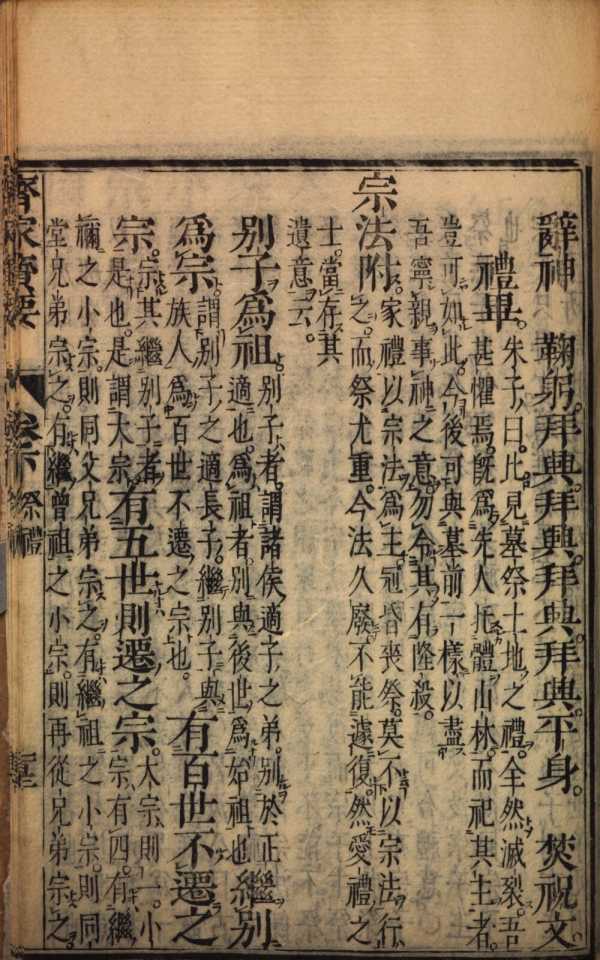 辭神　鞠躬。拜興。拜興。拜興。拜興。平身。　焚祝文。
禮畢。朱子曰。比見墓祭土地之禮。全然滅裂。吾
甚懼焉。既爲先人托體山林。而祀其主者。
豈可如此。今後可與墓前一樣。以盡
吾寧親事神之意。勿令其有隆殺。
宗法附。家禮以宗法爲主。冠昏喪祭。莫不以宗法行
之。而祭尤重。今法久廢。不能遽復。然愛禮之
士。當存其
遺意云。
別子爲祖。別子者。謂諸侯適子之弟。別於正
適也。爲祖者。別與後世爲始祖也。繼別
爲宗。謂別子之適長子。繼別子與
族人爲百世不遷之宗也。有百世不遷之
宗。宗其繼別子者
是也。是謂大宗。有五世則遷之宗。大宗則一。小
宗有四。有繼
禰之小宗。則同父兄弟宗之。有繼祖之小宗。則同
堂兄弟宗之。有繼曾祖之小宗。則再從兄弟宗之。
齊家寶要
卷下　祭禮